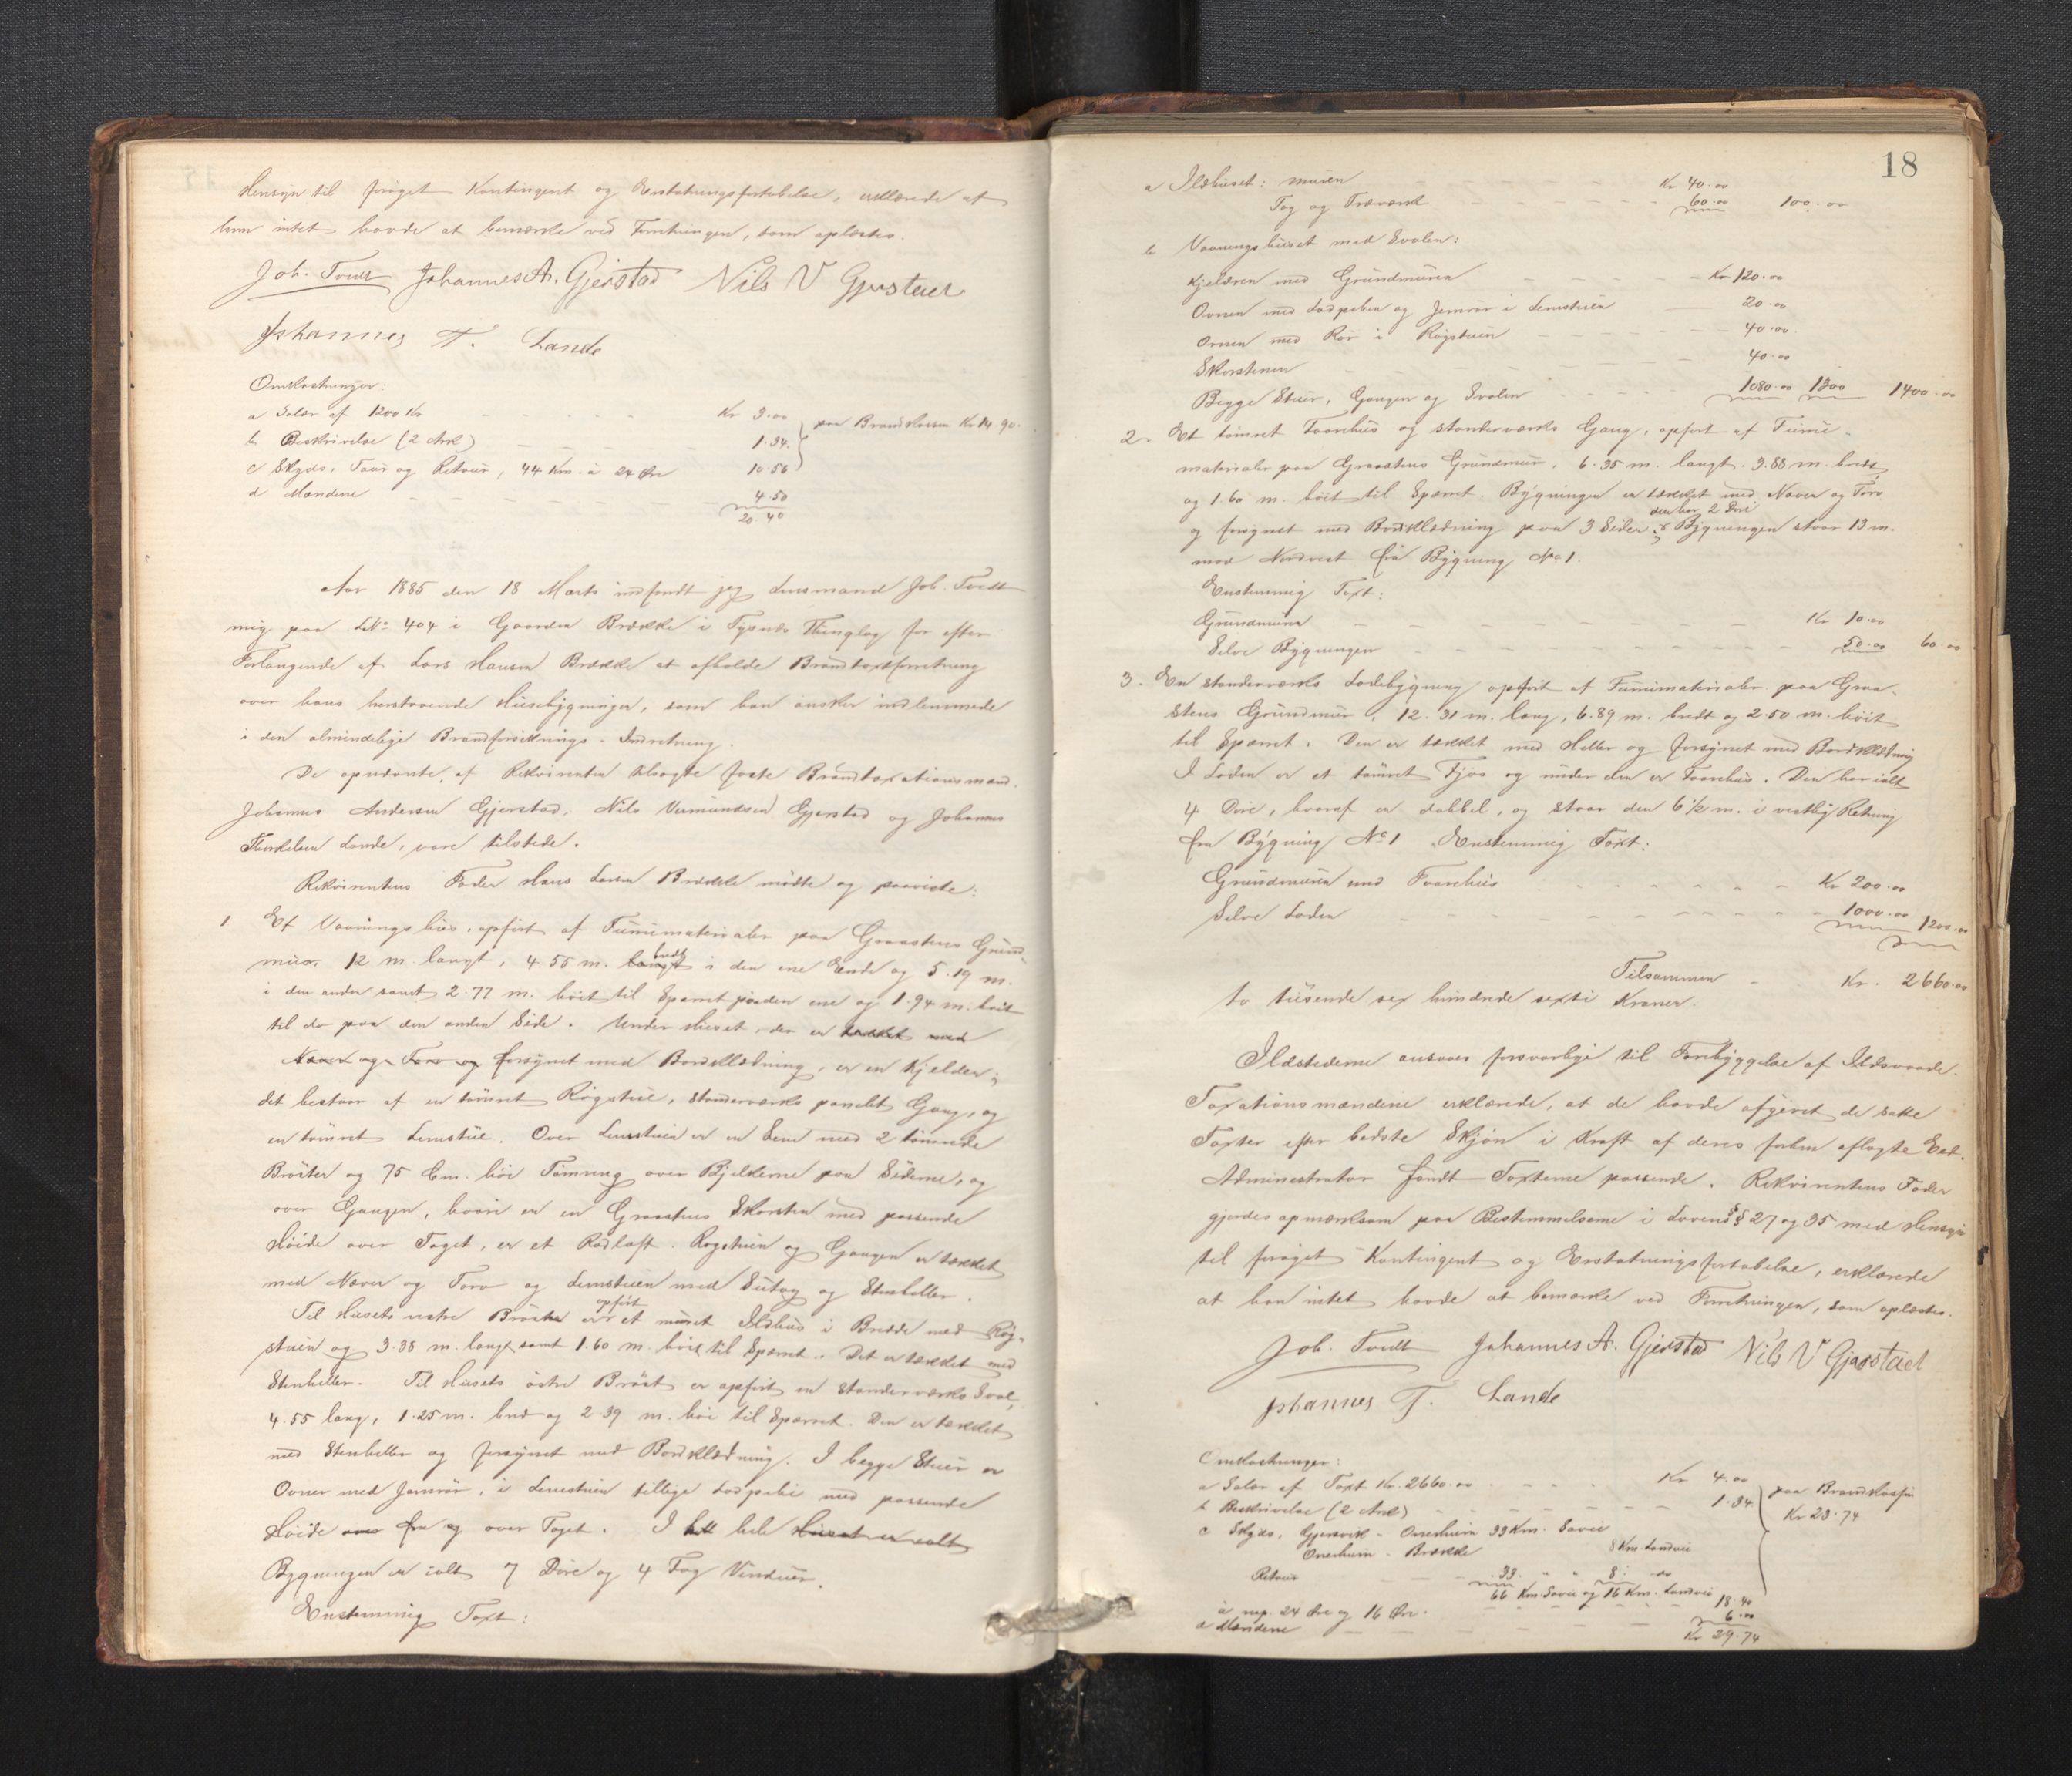 Hensyn til forøget Kontingent og Erstatningsfortabelse, erklærede at
han intet havde at bemærke ved Forretningen, som oplæstes.
Joh. Tvedt Johannes A. Gjerstad Nils V Gjerstad
Johannes T. Lande
Omkostninger:
a Salær af 1200 Kr Kr 3.00
b Beskrivelse (2 Ark) 1.34 paa Brandkassen Kr 14.90.
c Skyds, Tour og Retour, 44 Km. à 24 Øre 10.56
d Mændene 4.50
20.40
Aar 1885 den 18 Marts indfandt jeg Lensmand Joh. Tvedt
mig paa LNo 404 i Gaarden Brække i Tysnæs Thinglag for efter
Forlangende af Lars Hansen Brække at afholde Brandtaxtforretning
over hans herstaaende Husebygninger, som han ønsker indlemmede
i den almindelige Brandforsikrings-Indretning.
De opnævnte, af Rekvirenten tilsagte faste Brandtaxationsmænd.
Johannes Andersen Gjerstad, Nils Vermundsen Gjerstad og Johannes
Thorkelsen Lande, vare tilstede.
Rekvirentens Fader Hans Larsen Brække mødte og paaviste:
1 Et Vaaningshus, opført af Furumaterialer paa Graastens Grund-
mur, 12 m. langt, 4.55 m. langt bredt i den ene Ende og 5.19 m.
i den anden samt 2.77 m. høit til Sparret paa den ene og 1.94 m. høit
til do paa den anden Side. Under Huset, der er tækket med
Næver og Torv og forsynet med Bordklædning, er en Kjelder;
det bestaar af en tømret Røgstue, standerværks panelet Gang, og
en tømret Lemstue. Over Lemstuen er en Lem med 2 tømrede
Brøster og 75 Cm. høi Tømring over Bjelkerne paa Siderne, og
over Gangen, hvori er en Graastens Skorsten med passende
Høide over Taget, er et Rødloft. Røgstuen og Gangen er tækket
med Næver og Torv og Lemstuen med Sutag og Stenheller.
Til Husets vestre Brøst er opført et muret Ildhus i Bredde med Røg-
stuen og 3.35 m. langt samt 1.60 m. høit til Sparret. Det er tækket med
Stenheller. Til Husets østre Brøst er opført en standerværks Sval,
4.55 lang, 1.25 m. bred og 2.39 m. høi til Sparret. Den er tækket
med Stenheller og forsynet med Bordklædning. I begge Stuer er
Ovner med Jernrør, i Lemstuen tillige Lodpibe med passende
Høide over fra og over Taget. I hele Huset er ialt
Bygningen er ialt 7 Døre og 4 Fag Vinduer.
Enstemmig Taxt:
18
a Ildhuset: muren Kr 40.00
Tag og Træværk 60.00 100.00
b Vaaningshuset med Svalen:
Kjelderen med Grundmuren Kr 120.00
Ovnen med Lodpiben og Jernrør i Lemstuen 20.00
Ovnen med Rør i Røgstuen 40.00
Skorstenen 40.00
Begge Stuer, Gangen og Svalen 1080.00 1300 1400.00
2. Et tømret Faarehus og standerværks Gang, opført af Furu-
materialer paa Graastens Grundmur, 6.35 m. langt. 3.88 m. bredt
og 1.60 m. høit til Sparret. Bygningen er tækket med Næver og Torv
og forsynet med Bordklædning paa 3 Sider; den har 2 Døre Bygningen staar 13 m.
mod Nordvest fra Bygning No 1.
Enstemmig Taxt:
Grundmuren Kr 10.00
Selve Bygningen 50.00 60.00
3. En standerværks Ladebygning opført af Furumaterialer paa Graa-
stens Grundmur, 12.31 m. lang, 6.89 m. bredt og 2.50 m. høit
til Sparret. Den er tækket med Heller og forsynet med Bordklædning
I Laden er et tømret Fjøs og under den er Faarehus. Den har ialt
4 Døre, hvoraf er dobbel, og staar den 6 1/2 m. i vestlig Retning
fra Bygning No 1 Enstemmig Taxt:
Grundmuren med Faarehus Kr 200.00
Selve Laden 1000.00 1200.00
Tilsammen Kr. 2660.00
to tusende sex hundrede sexti Kroner.
Ildstederne ansaaes forsvarlige til Forebyggelse af Ildsvaade.
Taxationsmændene erklærede, at de havde afgivet de satte
Taxter efter bedste Skjøn i Kraft af deres forhen aflagte Eed.
Administrator fandt Taxterne passende. Rekvirentens Fader
gjordes opmærksom paa Bestemmelserne i Lovens §§ 27 og 35 med Hensyn
til forøget Kontingent og Erstatningsfortabelse, erklærede
at han intet havde at bemærke ved Forretningen, som oplæstes.
Joh. Tvedt Johannes A. Gjerstad Nils V Gjerstad
Johannes T. Lande
Omkostninger:
a Salær af Taxt Kr. 2660.00 Kr 4.00
b Beskrivelse (2 Ark) 1.34 paa Brandkassen
c Skyds, Gjersvik - Onarheim 33 Km. Søvei Kr 23.74
Onarheim - Brække 8 Km. Landvei
Retour 33. " " 8 " do
66 Km. Søvei og 16 Km. Landvei
à resp. 24 Øre og 16 Øre. 18.40
d Mændene 6.00
Kr 29.74